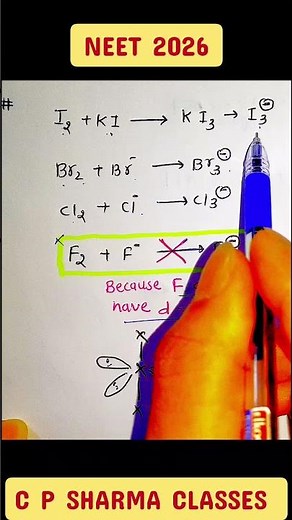 NEET 2026
#
I₂ + KI ⟶ KI₃ → I₃⊖
Br₂ + Br⁻ ⟶ Br₃⊖
Cl₂ + Cl⁻ ⟶ Cl₃⊖
x F₂ + F⁻ ⟶ ⊖
Because F
have d
C P SHARMA CLASSES